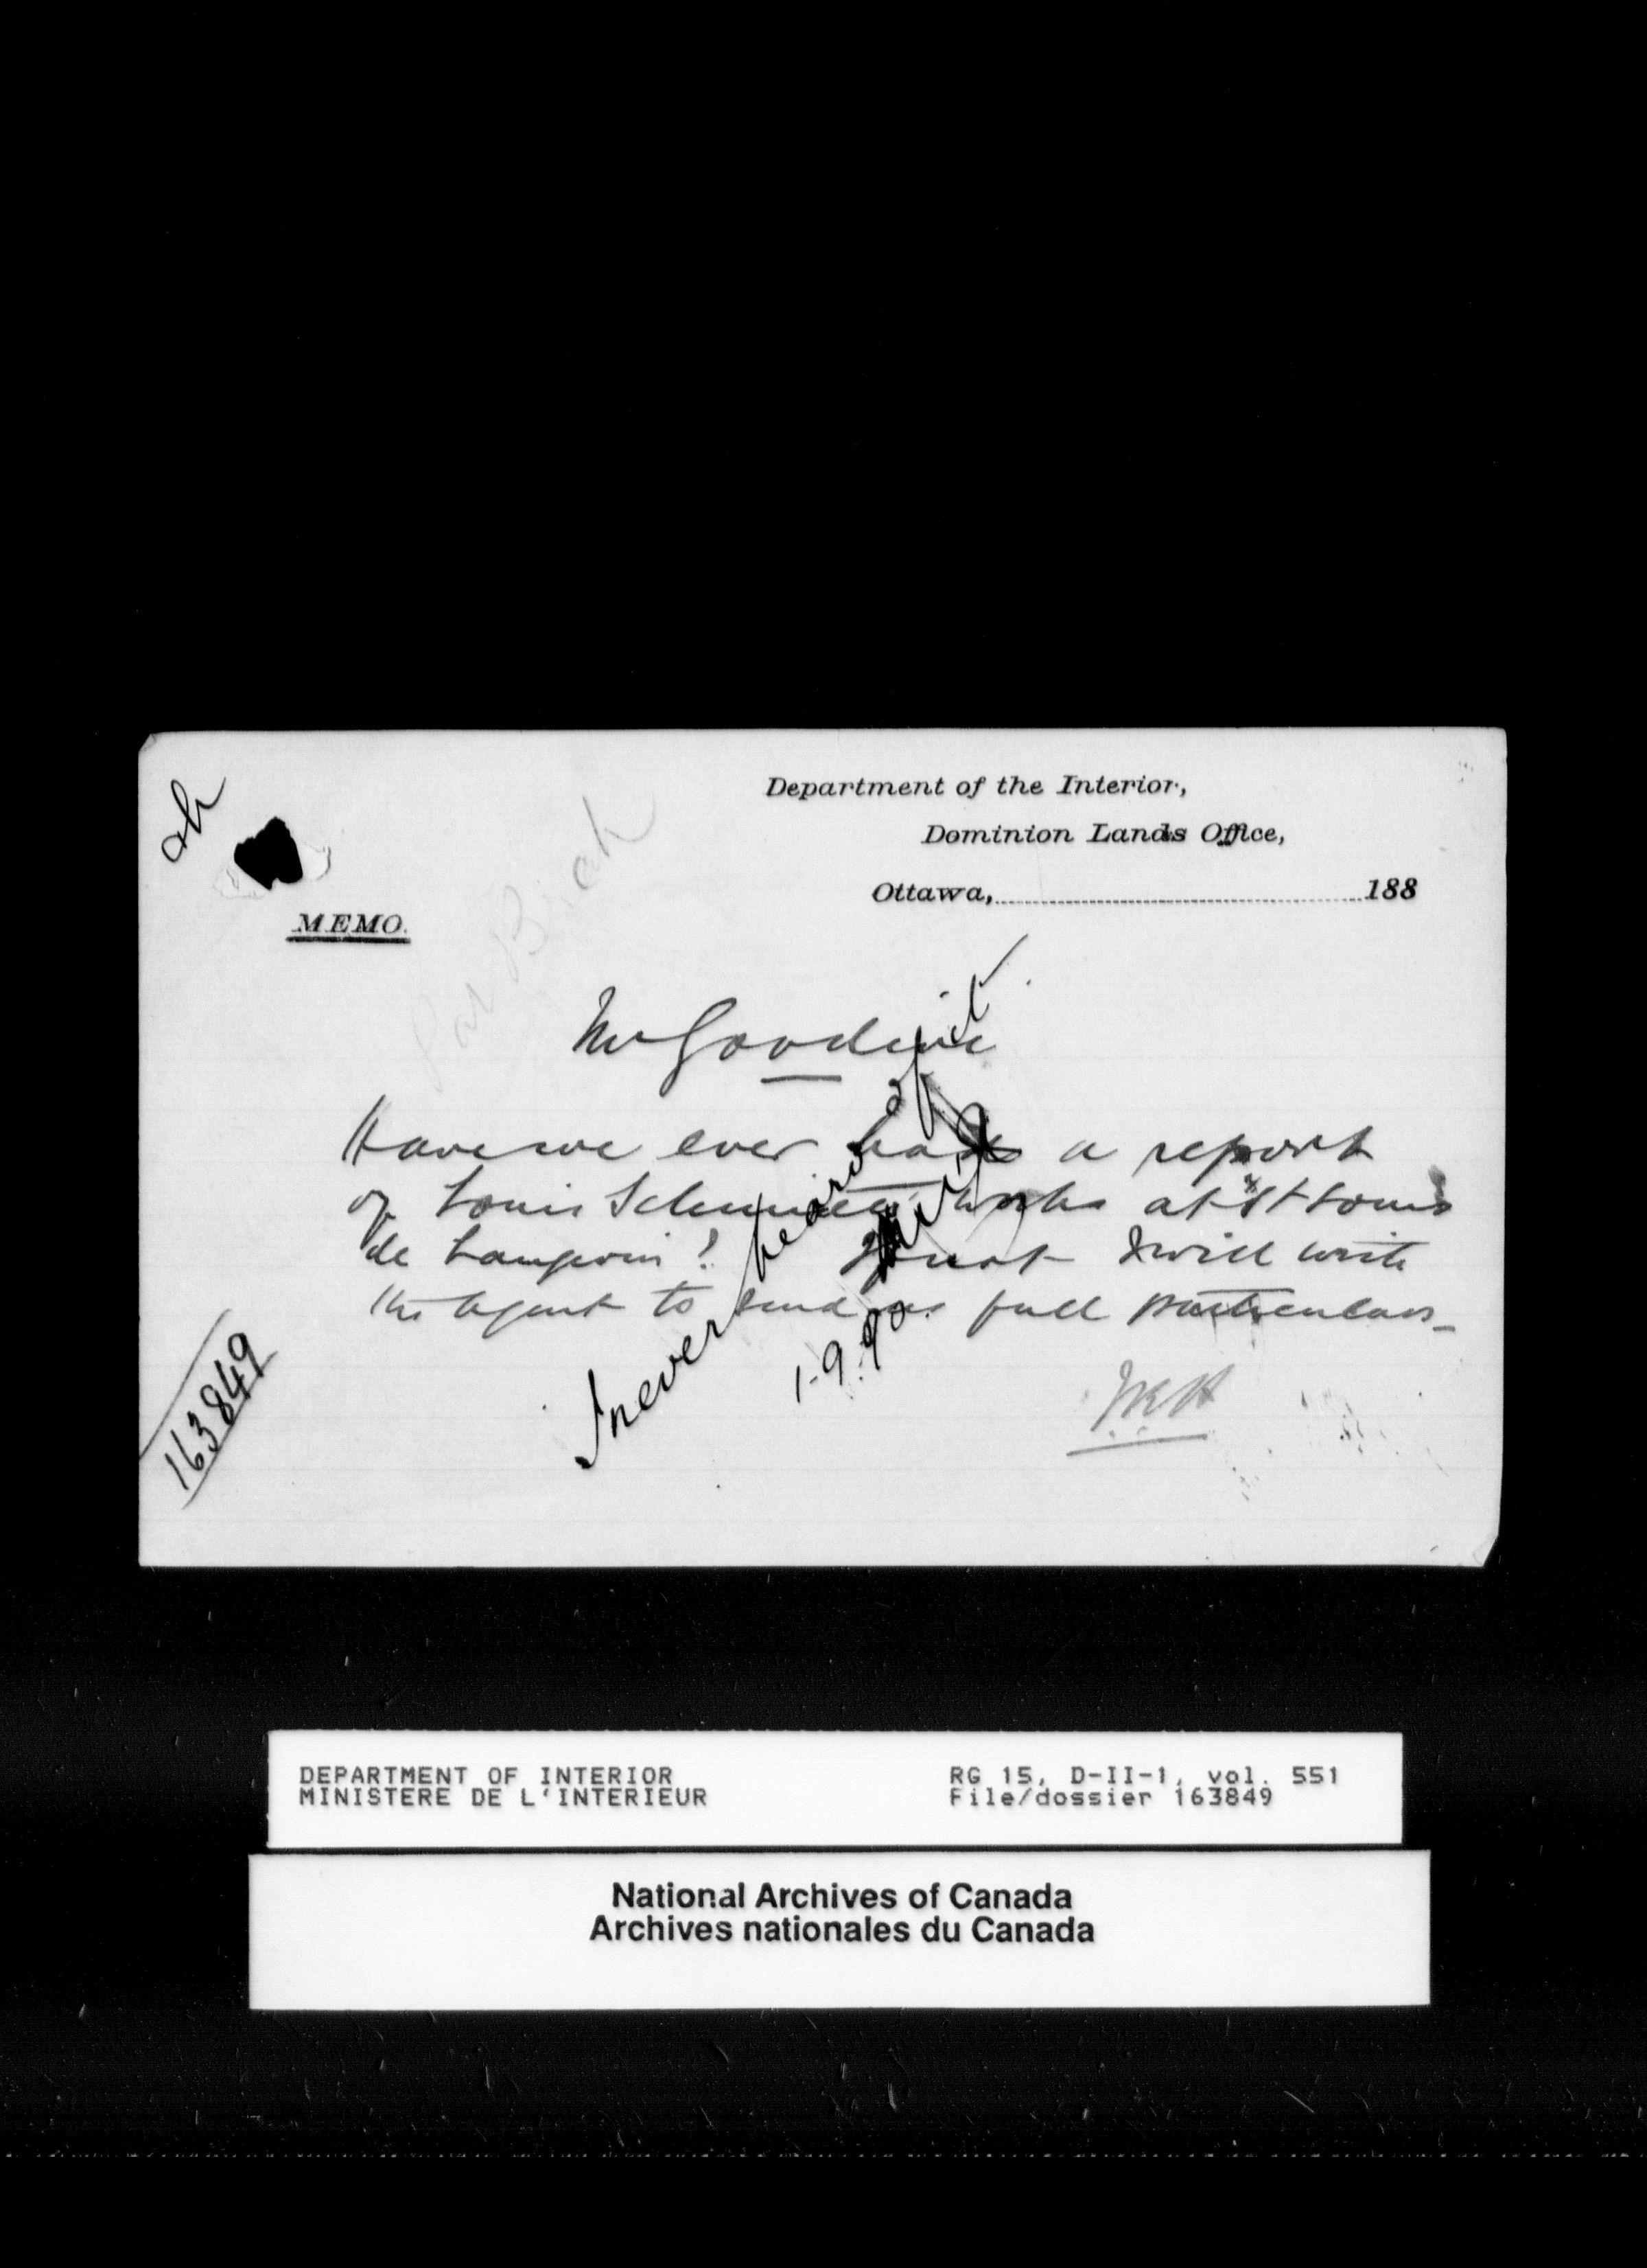 Department of the Interior,
Dominion Lands Office,
Ottawa, 188
MEMO.
Mr Goodeve
Have we ever had a report
of Louis Schmidt's works at St Louis
de Langevin? If not I will write
the agent to send us full particulars
I never heard of it
1.9.90.
163849
DEPARTMENT OF INTERIOR
MINISTERE DE L'INTERIEUR
RG 15, D-II-1, vol. 551
File/dossier 163849
National Archives of Canada
Archives nationales du Canada